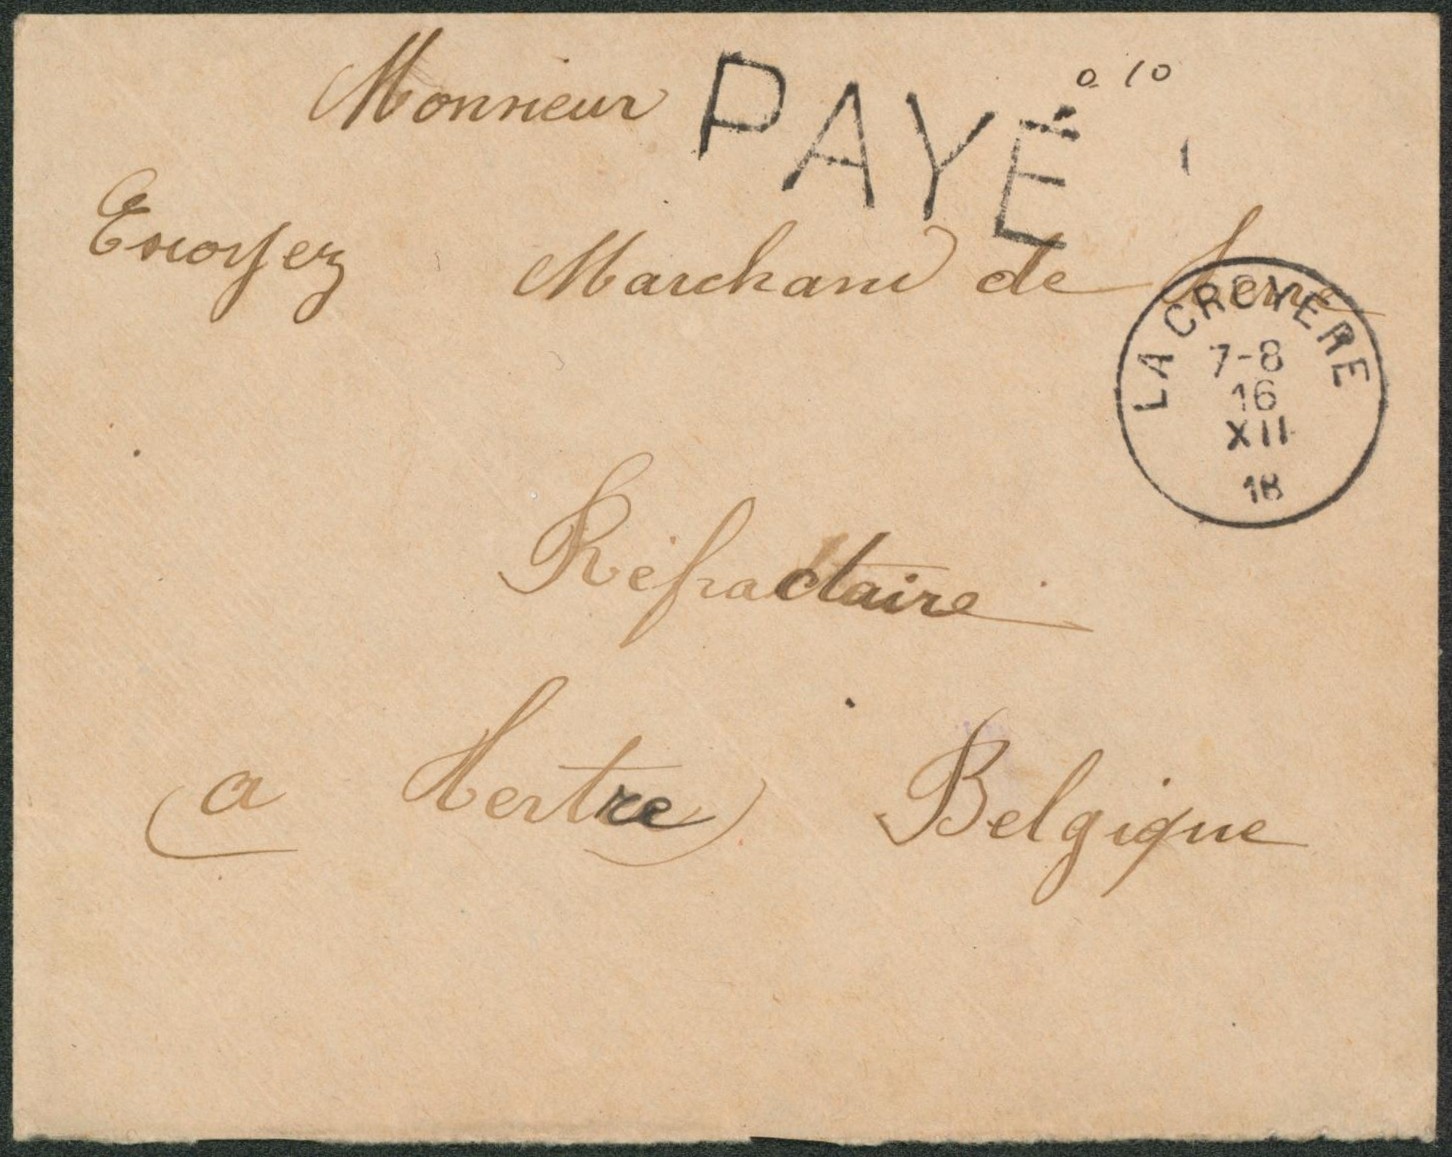 Monsieur
PAYÉ
0 10
Marchand de
LA CROYERE
7-8
16
XII
18
Réfractaire
a Hertre Belgique